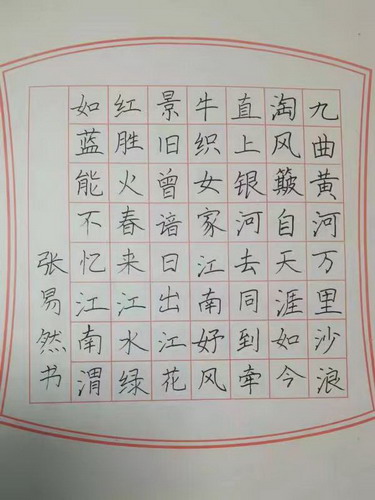 九曲黄河万里沙浪
淘风簸自天涯如今
直上银河去同到牵
牛织女家江南好风
景旧曾谙日出江花
红胜火春来江水绿
如蓝能不忆江南渭
张易然书